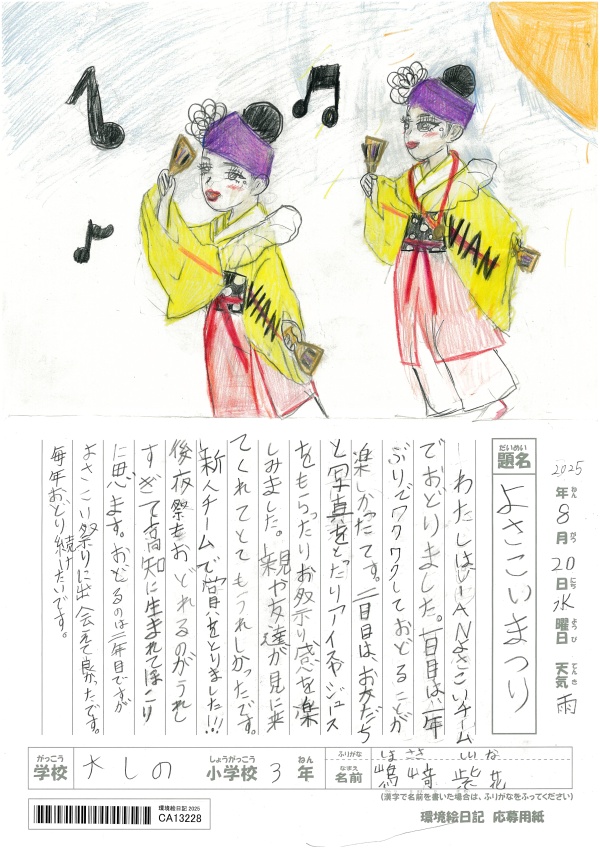 VIAN
VIAN
2025年8月20日水曜日 天気雨
ねん がつ にち ようび てんき
だいめい
題名
よさこいまつり
わたしはVIANよさこいチーム
でおどりました。一日目は、一年
ぶりでワクワクしておどることが
楽しかったです。二日目は、お友だち
と写真をとったりアイスやジュース
をもらったりお祭り感を楽
しみました。親や友達が見に来
てくれてとてもうれしかったです。
新人チームで賞をとりました!!!
後夜祭もおどれるのがうれし
すぎて高知に生まれてほこり
に思います。おどるのは二年目ですが
よさこい祭りに出会えて良かたです。
毎年おどり続けたいです。
がっこう
学校
大しの
しょうがっこう
小学校
3
ねん
年
ふりがな
しまさき しいな
なまえ
名前
嶋﨑 紫花
(漢字で名前を書いた場合は、ふりがなをふってください)
環境絵日記 2025
CA13228
環境絵日記 応募用紙